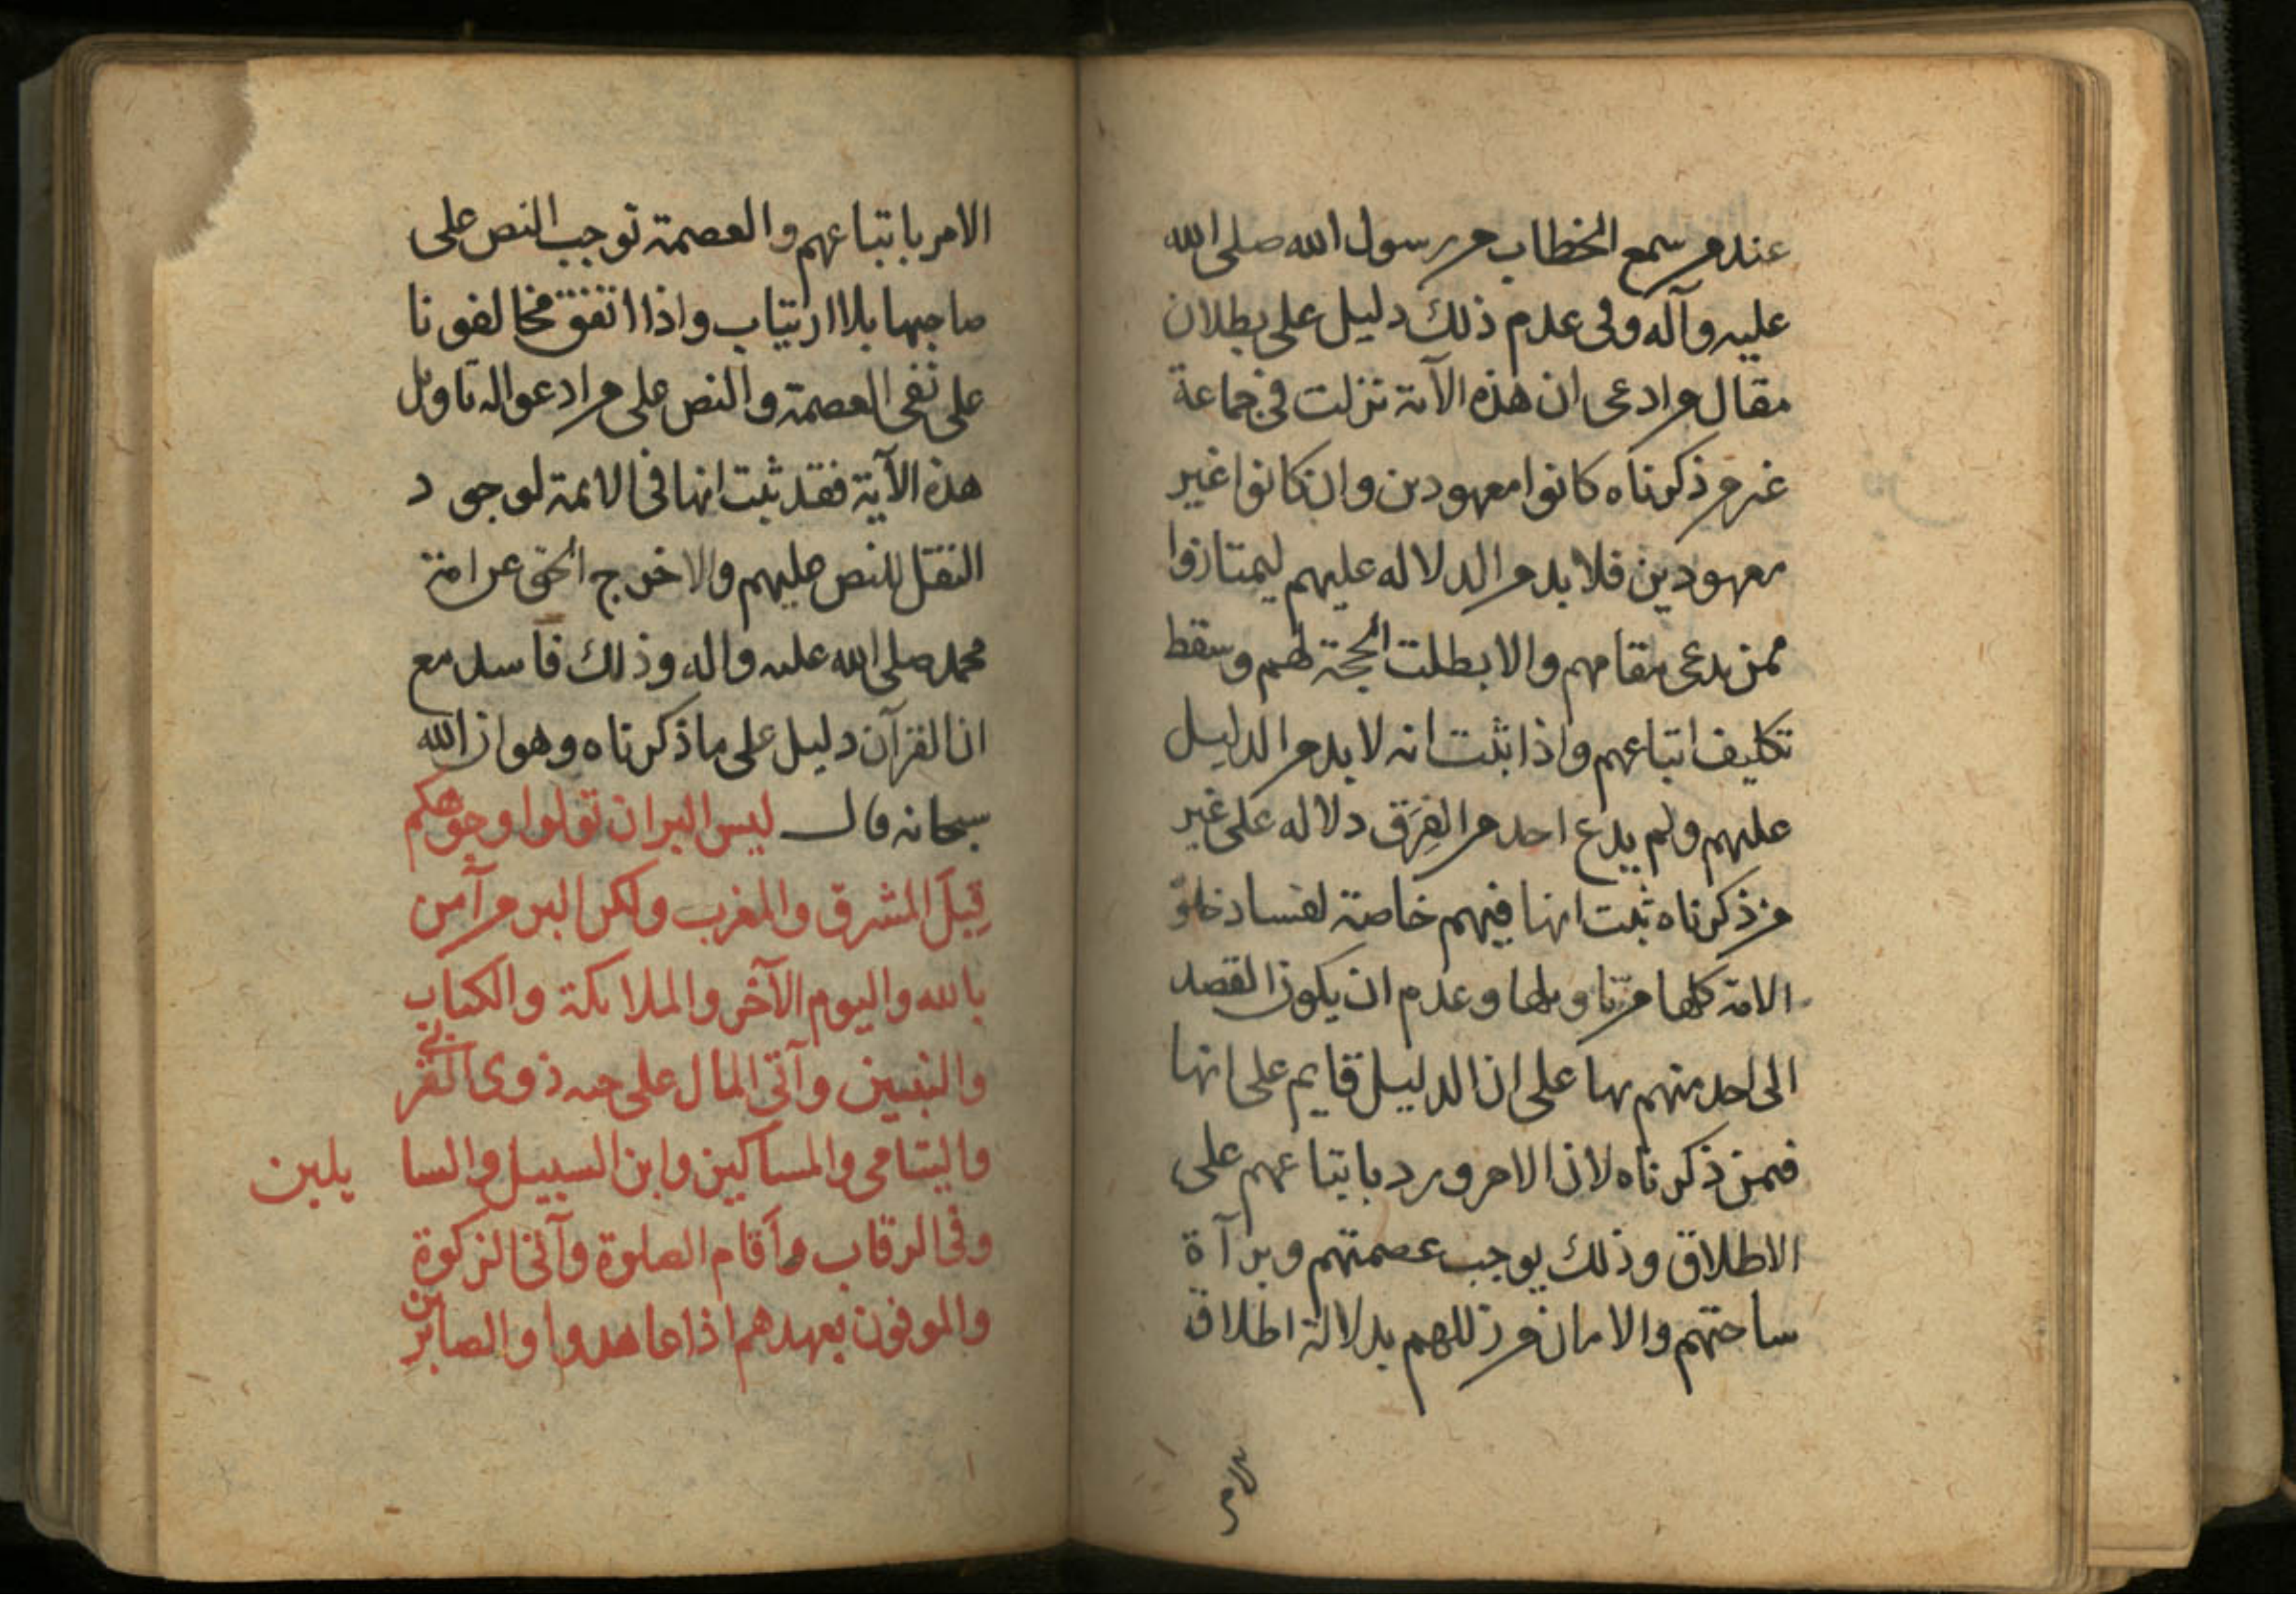 عند من سمع الخطاب من رسول الله صلى الله
عليه وآله وفى عدم ذلك دليل على بطلان
مقال من ادعى ان هذه الآية نزلت فى جماعة
غير من ذكرناه كانوا معهودين وان كانوا غير
معهودين فلا بد من الدلاله عليهم ليمتازوا
ممن يدعى مقامهم والا بطلت الحجة لهم وسقط
تكليف اتباعهم واذا ثبت انه لا بد من الدليل
عليهم ولم يدع احد من الفِرَق دلاله على غير
من ذكرناه ثبت انها فيهم خاصة لفساد خلوّ
الامة كلها من تاويلها وعدم ان يكون القصد
الى احد منهم بها على ان الدليل قايم على انها
فيمن ذكرناه لان الامر ورد باتباعهم على
الاطلاق وذلك يوجب عصمتهم وبرآة
ساحتهم والامان من زللهم بدلالة اطلاق
الامر باتباعهم والعصمة توجب النص على
صاحبها بلا ارتياب واذا اتفق مخالفونا
على نفى العصمة والنص على من ادعوا له تاويل
هذه الآية فقد ثبت انها فى الائمة لوجود
النقل للنص عليهم والا خرج الحق عن امة
محمد صلى الله عليه واله وذلك فاسد مع
ان القرآن دليل على ما ذكرناه وهو ان الله
سبحانه قال ليس البر ان تولوا وجوهكم
قِبَلَ المشرق والمغرب ولكن البر من آمن
بالله واليوم الآخر والملائكة والكتاب
والنبيين وآتى المال على حبه ذوى القربى
واليتامى والمساكين وابن السبيل والسا يلين
وفى الرقاب وأقام الصلوة وآتى الزكوة
والموفون بعهدهم اذا عاهدوا والصابرين